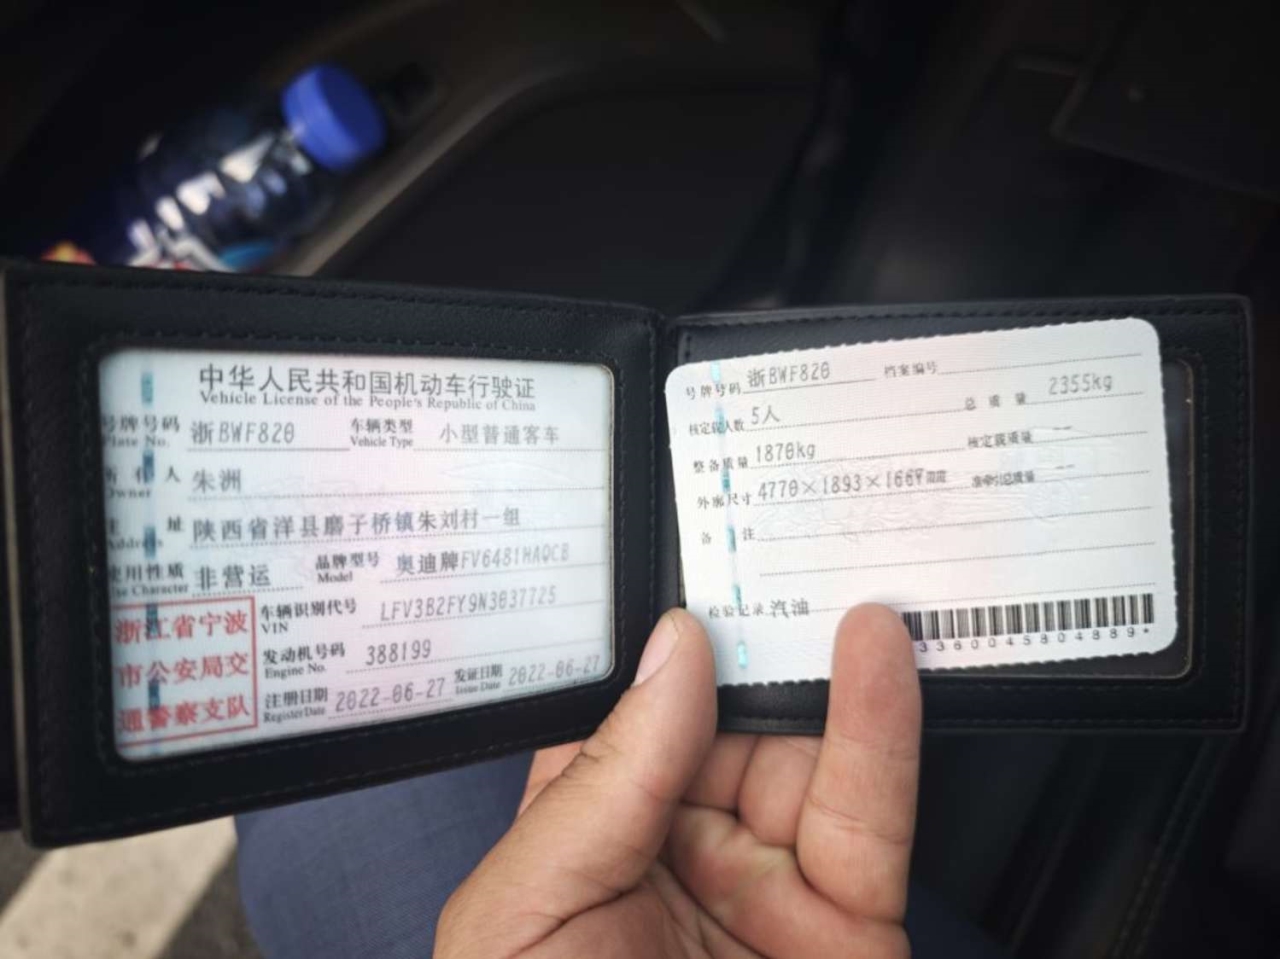 中华人民共和国机动车行驶证
Vehicle License of the People's Republic of China
号牌号码 浙BWF820 车辆类型 小型普通客车
Plate No. Vehicle Type
所有人 朱洲
Owner
住址 陕西省洋县磨子桥镇朱刘村一组
Address
使用性质 非营运 品牌型号 奥迪牌FV6481HAQCB
Use Character Model
浙江省宁波
市公安局交
通警察支队
车辆识别代号 LFV3B2FY9N3037725
VIN
发动机号码 388199
Engine No.
注册日期 2022-06-27 发证日期 2022-06-27
Register Date Issue Date
号牌号码 浙BWF820 档案编号
核定载人数 5人 总质量 2355kg
整备质量 1870kg 核定载质量 --
外廓尺寸 4770×1893×1667mm 准牵引总质量 --
备注
检验记录 汽油
3360045804889*